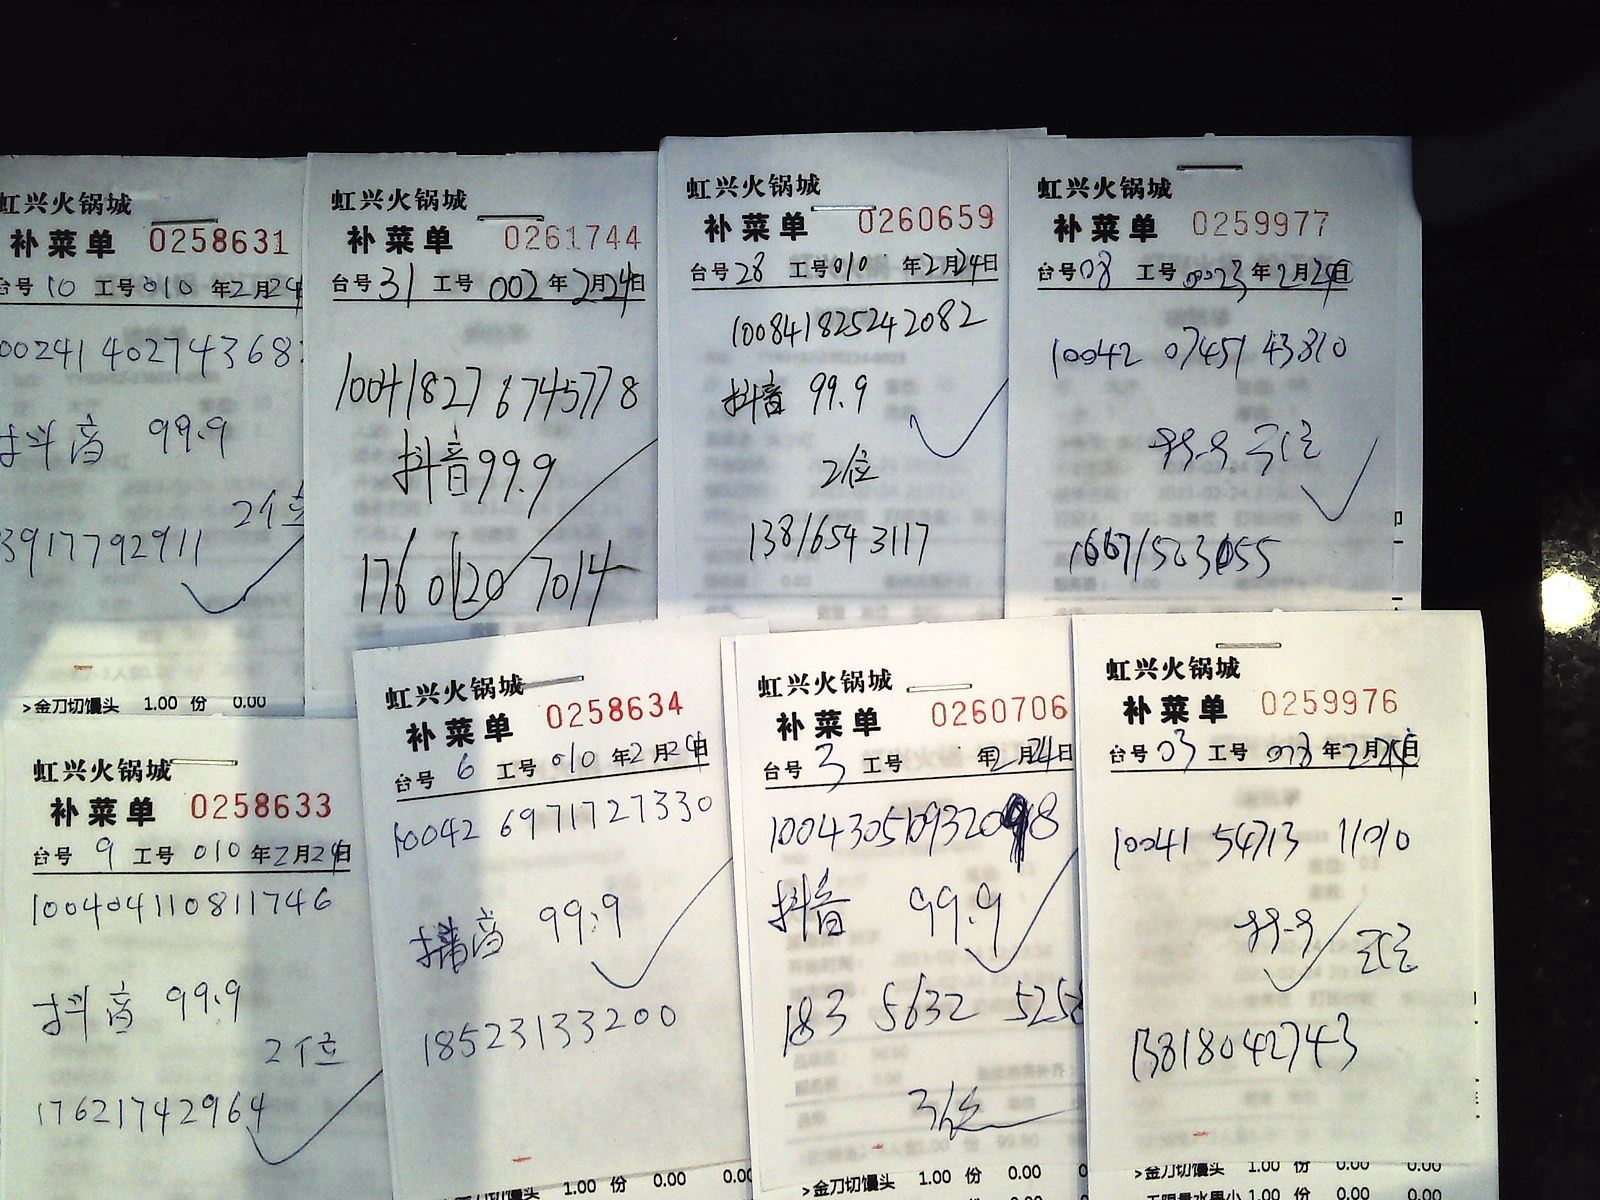 虹兴火锅城
补菜单 0258631
台号10 工号010 年2月24
00241402743682
抖音 99.9
2位
3917792911
>金刀切馒头 1.00 份 0.00
虹兴火锅城
补菜单 0261744
台号31 工号 002年2月24日
100418276745778
抖音99.9
176 0120 7014
虹兴火锅城
补菜单 0260659
台号28 工号010 年2月24日
100841825242082
抖音 99.9
2位
13816543117
虹兴火锅城
补菜单 0259977
台号08 工号0023年2月24日
10042 07451 43810
99.9
虹兴火锅城
补菜单 0258633
台号 9 工号 010 年2月24日
100404110811746
抖音 99.9
2位
17621742964
虹兴火锅城
补菜单 0258634
台号 6 工号 010 年2月24日
10042 6971727330
抖音 99.9
18523133200
1.00 份 0.00 0.00
虹兴火锅城
补菜单 0260706
台号 3 工号 年2月24日
抖音 99.9
183 5632 525
3位
>金刀切馒头 1.00 份 0.00
虹兴火锅城
补菜单 0259976
台号 03 工号 年2月24日
10041 54713 11010
99.9
13818042743
>金刀切馒头 1.00 份 0.00 0.00
1.00 份 0.00 0.00